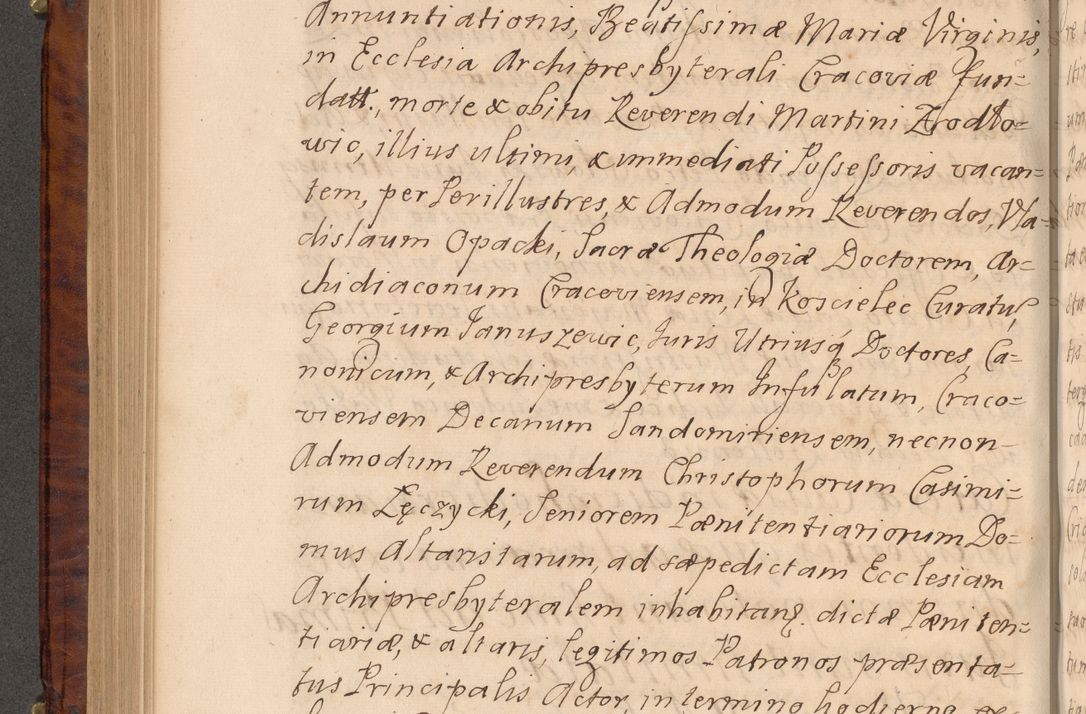 Annuntiationis, Beatissimæ Mariæ Virginis,
in Ecclesia Archipresbyterali Cracoviæ fun=
datt., morte & obitu Reverendi Martini Zrodło=
wic, illius ultimi, & immediati Possessoris vacan=
tem, per Perillustres, & Admodum Reverendos, Wla=
dislaum Opacki, Sacræ Theologiæ Doctorem, Ar=
chidiaconum Cracoviensem, in Koscielec Curatū,
Georgium Januszewic, Juris Utriusq́ Doctores, Ca=
nonicum, & Archipresbyterum Infulatum, Craco=
viensem Decanum Sandomiriensem, necnon
Admodum Reverendum Christophorum Casimi=
rum Łęczycki, Seniorem Pœnitentiariorum Do=
mus Altaristarum, ad sæpedictam Ecclesiam
Archipresbyteralem inhabitanṯ. dictæ Pœniten=
tiariæ, & altaris, legitimos Patronos præsenta=
tus Principalis Actor, in termino hodierno